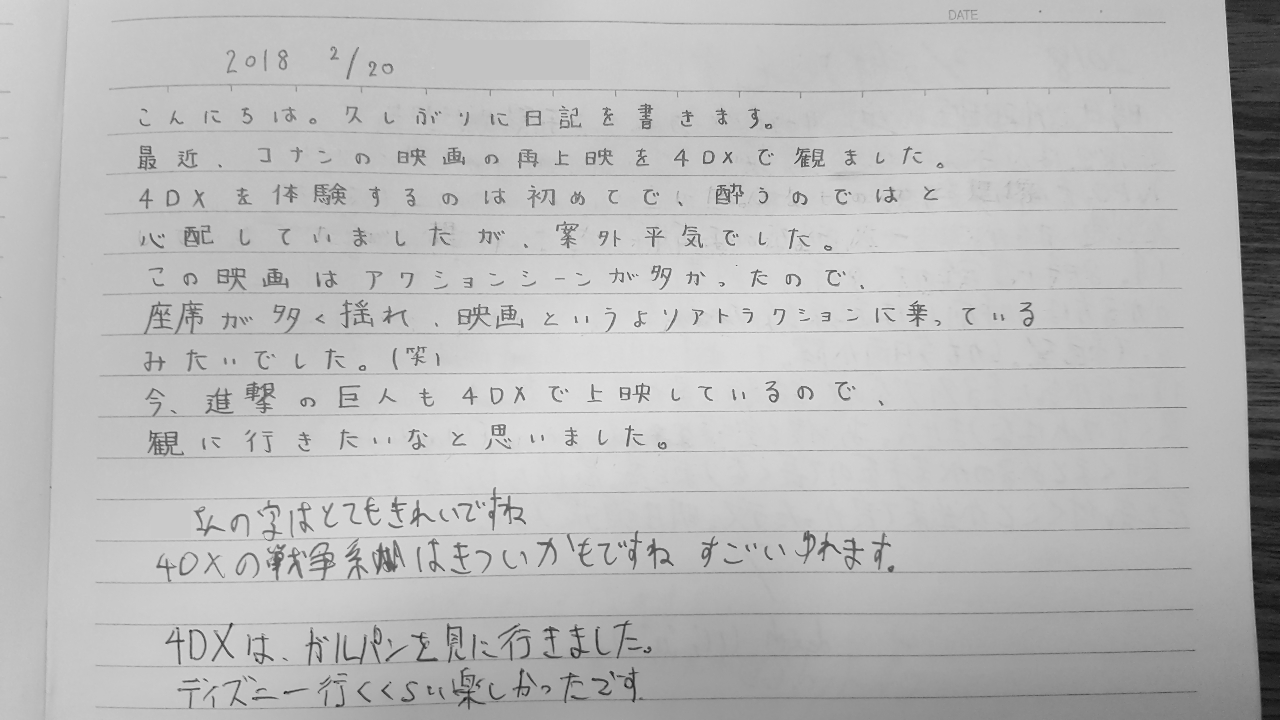 DATE
2018 2/20
こんにちは。久しぶりに日記を書きます。
最近、コナンの映画の再上映を4DXで観ました。
4DXを体験するのは初めてで、酔うのではと
心配していましたが、案外平気でした。
この映画はアクションシーンが多かったので、
座席が多く揺れ、映画というよりアトラクションに乗っている
みたいでした。(笑)
今、進撃の巨人も4DXで上映しているので、
観に行きたいなと思いました。
さんの字はとてもきれいですね
4DXの戦争系はきついかもですね すごいゆれます。
4DXは、ガルパンを見に行きました。
ディズニー行くくらい楽しかったです